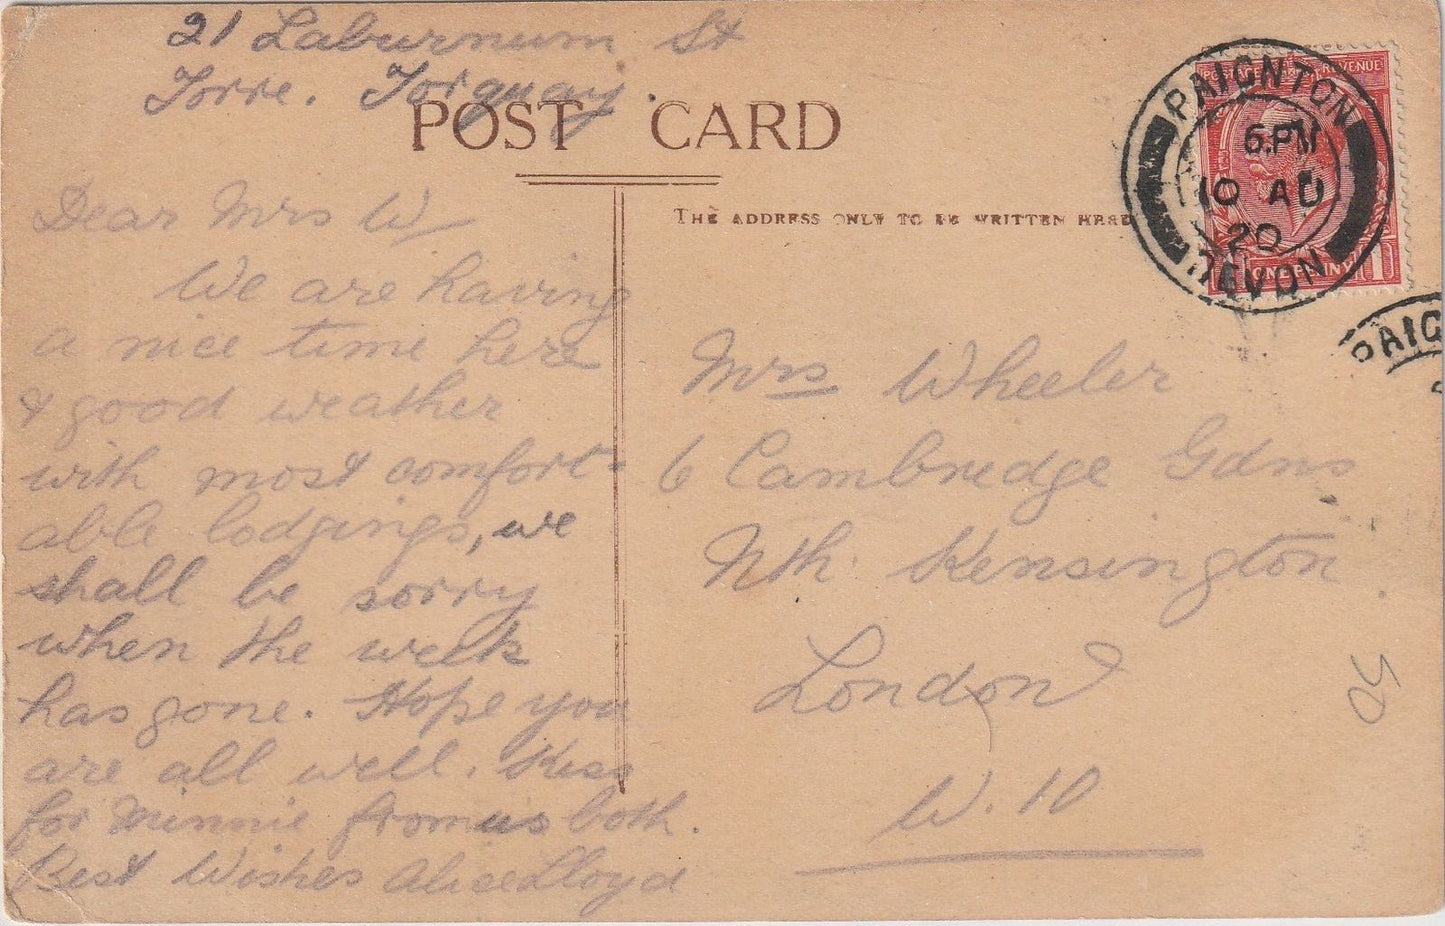 21 Laburnum St
Torre. Torquay.
POST CARD
THE ADDRESS ONLY TO BE WRITTEN HERE
POSTAGE REVENUE
ONE PENNY
PAIGNTON
6.PM
10 AU
20
DEVON
PAIG
Dear Mrs W
We are having
a nice time here
& good weather
with most comfort-
able lodgings, we
shall be sorry
when the week
has gone. Hope you
are all well. Kiss
for Minnie from us both.
Best Wishes Alice Lloyd
Mrs Wheeler
6 Cambridge Gdns
Nth. Kensington
London
W. 10
50